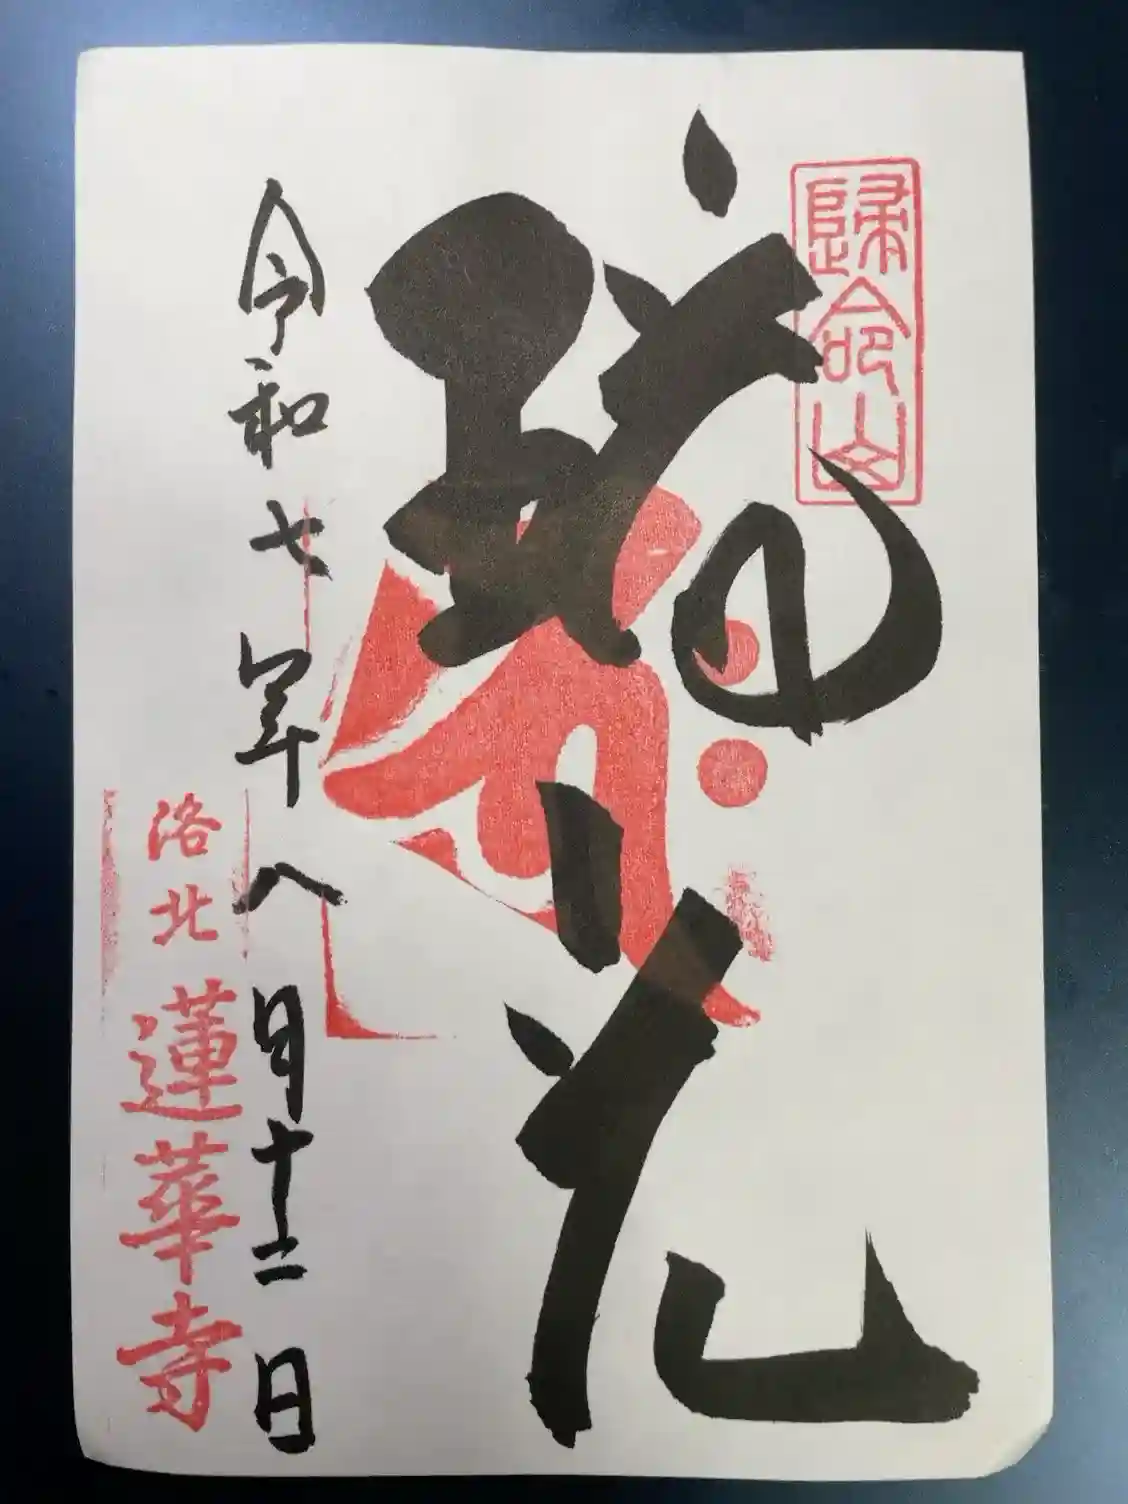 歸命山
花
令和七年八月十二日
洛北 蓮華寺